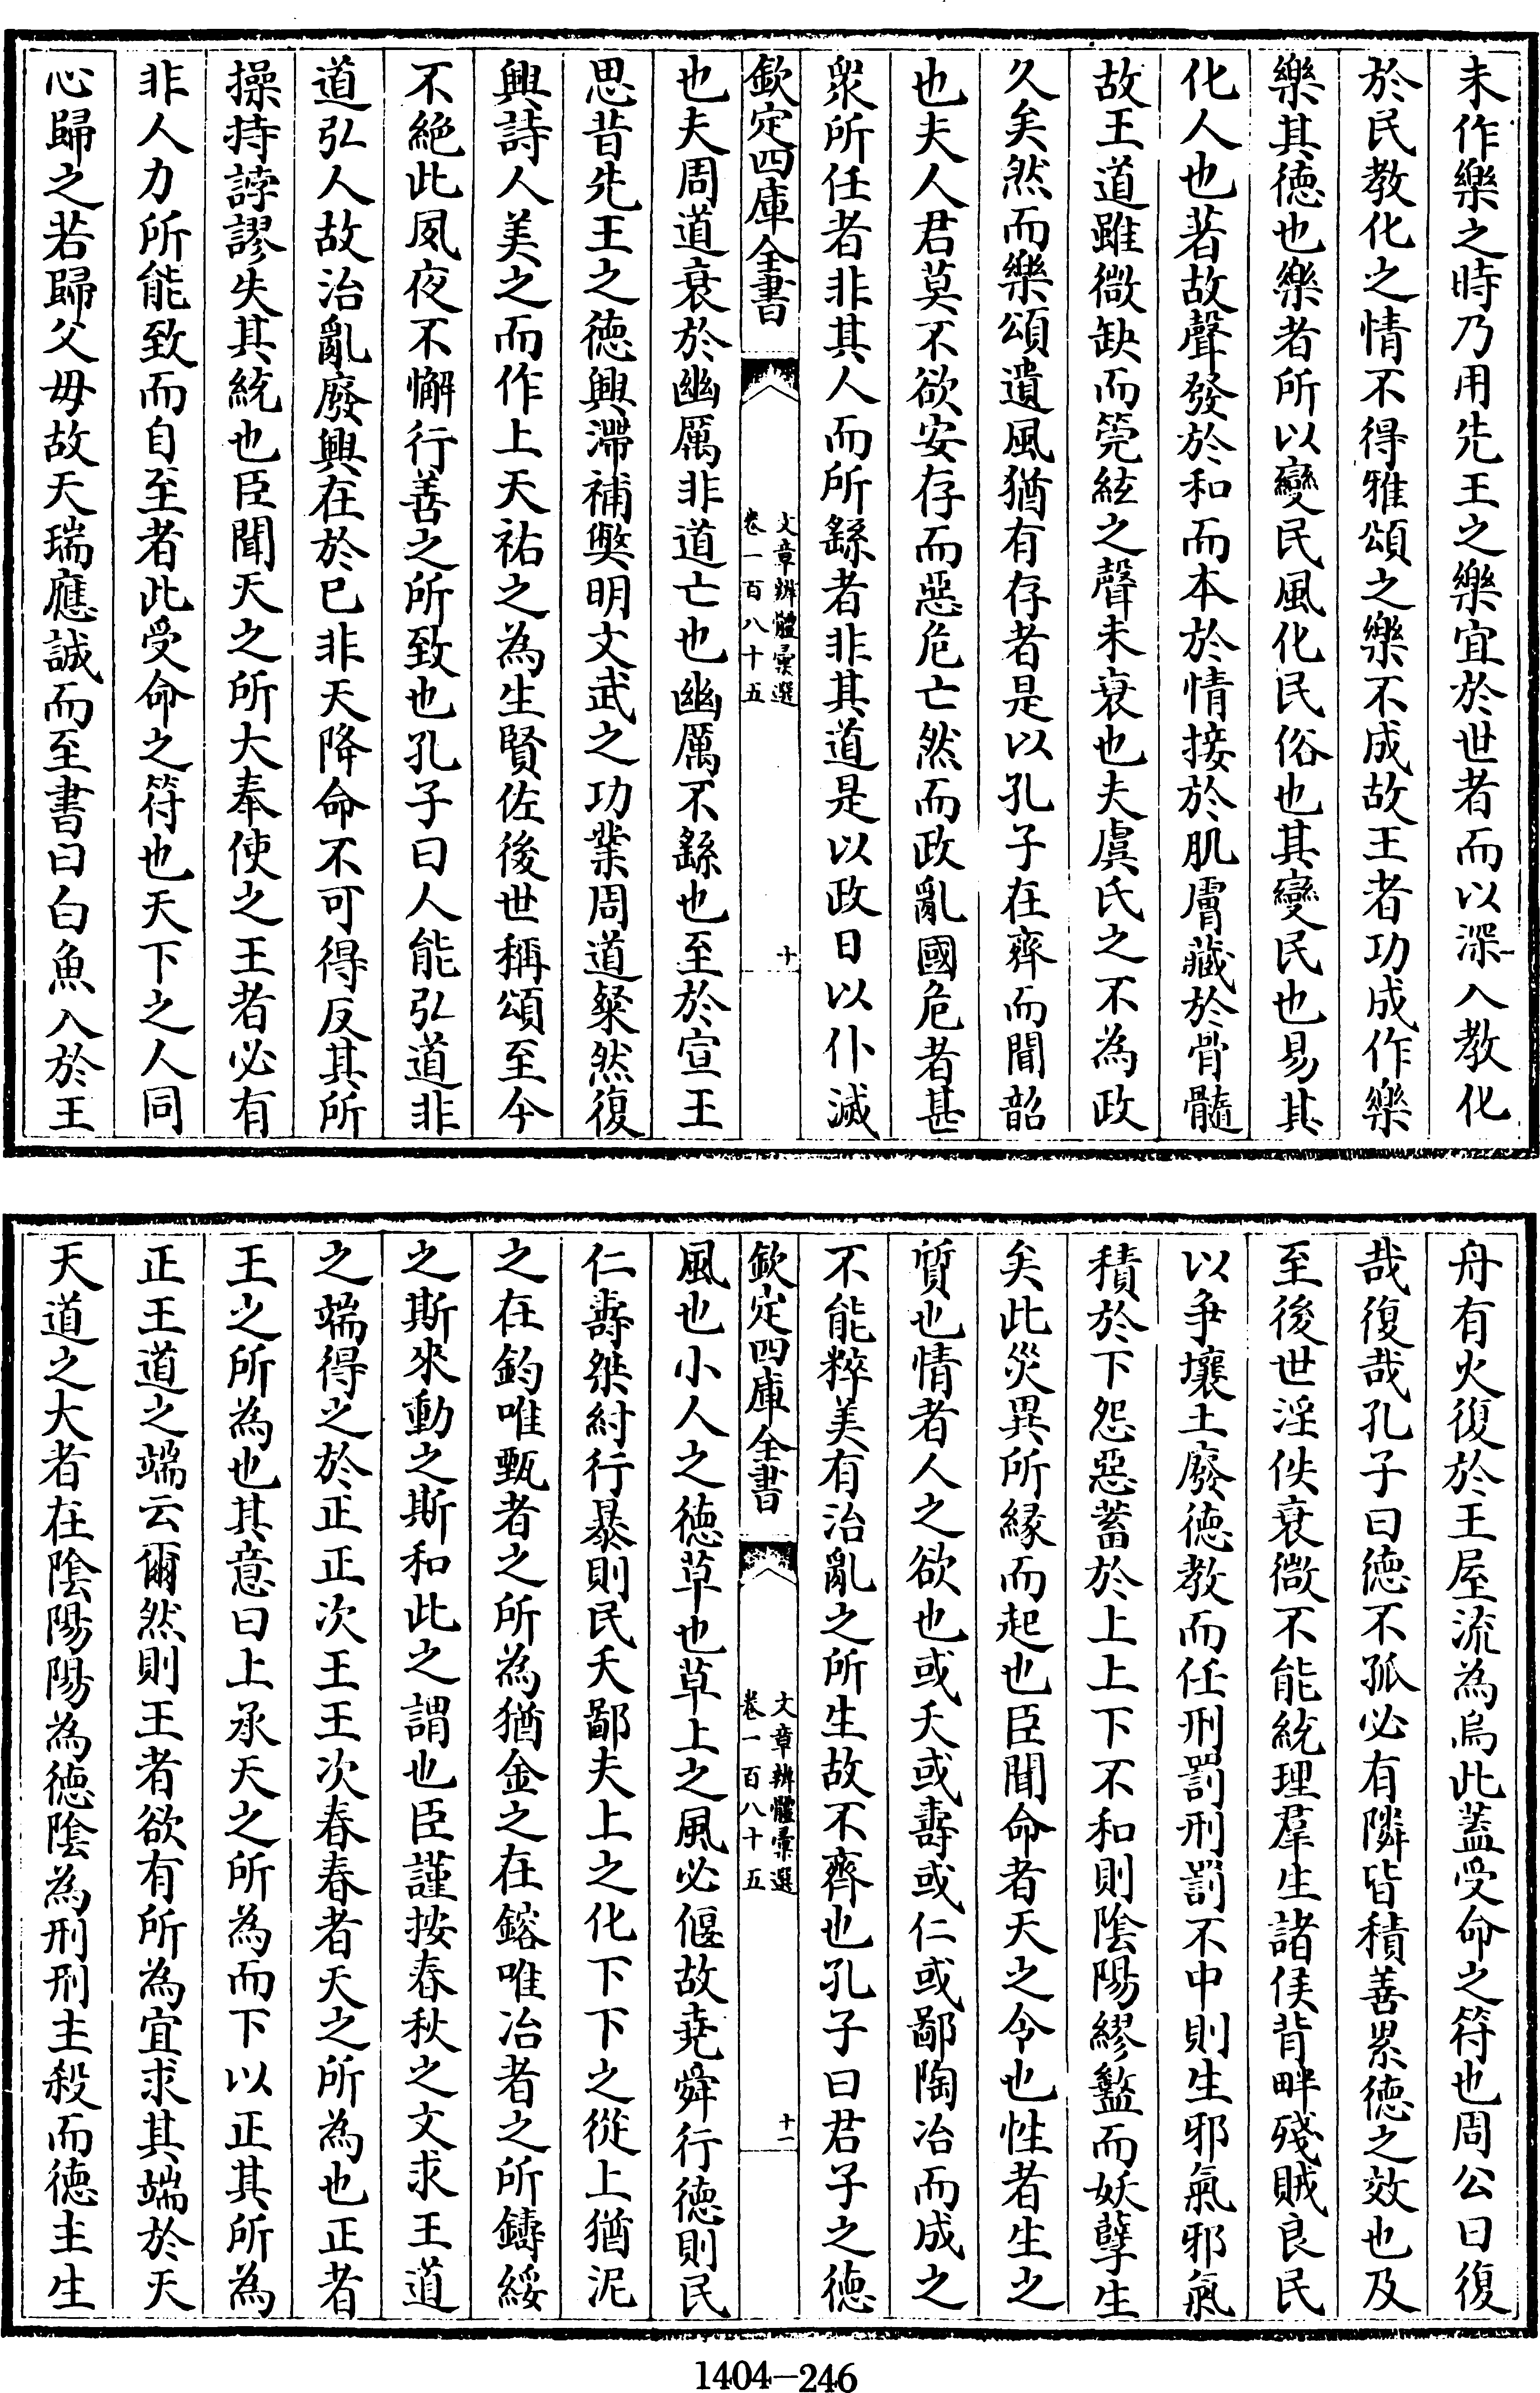 未作樂之時乃用先王之樂宜於世者而以深入教化
於民教化之情不得雅頌之樂不成故王者功成作樂
樂其徳也樂者所以變民風化民俗也其變民也易其
化人也著故聲發於和而本於情接於肌膚藏於骨髓
故王道雖微缺而筦絃之聲未衰也夫虞氏之不為政
久矣然而樂頌遺風猶有存者是以孔子在齊而聞韶
也夫人君莫不欲安存而惡危亡然而政亂國危者甚
衆所任者非其人而所繇者非其道是以政日以仆滅
欽定四庫全書
文章辨體彙選
卷一百八十五
十
也夫周道衰於幽厲非道亡也幽厲不繇也至於宣王
思昔先王之徳興滯補獘明文武之功業周道粲然復
興詩人美之而作上天祐之為生賢佐後世稱頌至今
不絶此夙夜不懈行善之所致也孔子曰人能弘道非
道弘人故治亂廢興在於已非天降命不可得反其所
操持誖謬失其統也臣聞天之所大奉使之王者必有
非人力所能致而自至者此受命之符也天下之人同
心歸之若歸父母故天瑞應誠而至書曰白魚入於王
舟有火復於王屋流為烏此蓋受命之符也周公曰復
哉復哉孔子曰徳不孤必有隣皆積善累徳之效也及
至後世淫佚衰微不能統理羣生諸侯背畔殘賊良民
以爭壤土廢徳教而任刑罰刑罰不中則生邪氣邪氣
積於下怨惡蓄於上上下不和則陰陽繆盭而妖孽生
矣此災異所緣而起也臣聞命者天之令也性者生之
質也情者人之欲也或夭或壽或仁或鄙陶冶而成之
不能粹美有治亂之所生故不齊也孔子曰君子之徳
欽定四庫全書
文章辨體彙選
卷一百八十五
十一
風也小人之徳草也草上之風必偃故堯舜行徳則民
仁壽桀紂行暴則民夭鄙夫上之化下下之從上猶泥
之在鈞唯甄者之所為猶金之在鎔唯冶者之所鑄綏
之斯來動之斯和此之謂也臣謹按春秋之文求王道
之端得之於正正次王王次春春者天之所為也正者
王之所為也其意曰上承天之所為而下以正其所為
正王道之端云爾然則王者欲有所為宜求其端於天
天道之大者在陰陽陽為徳陰為刑刑主殺而徳主生
1404—246